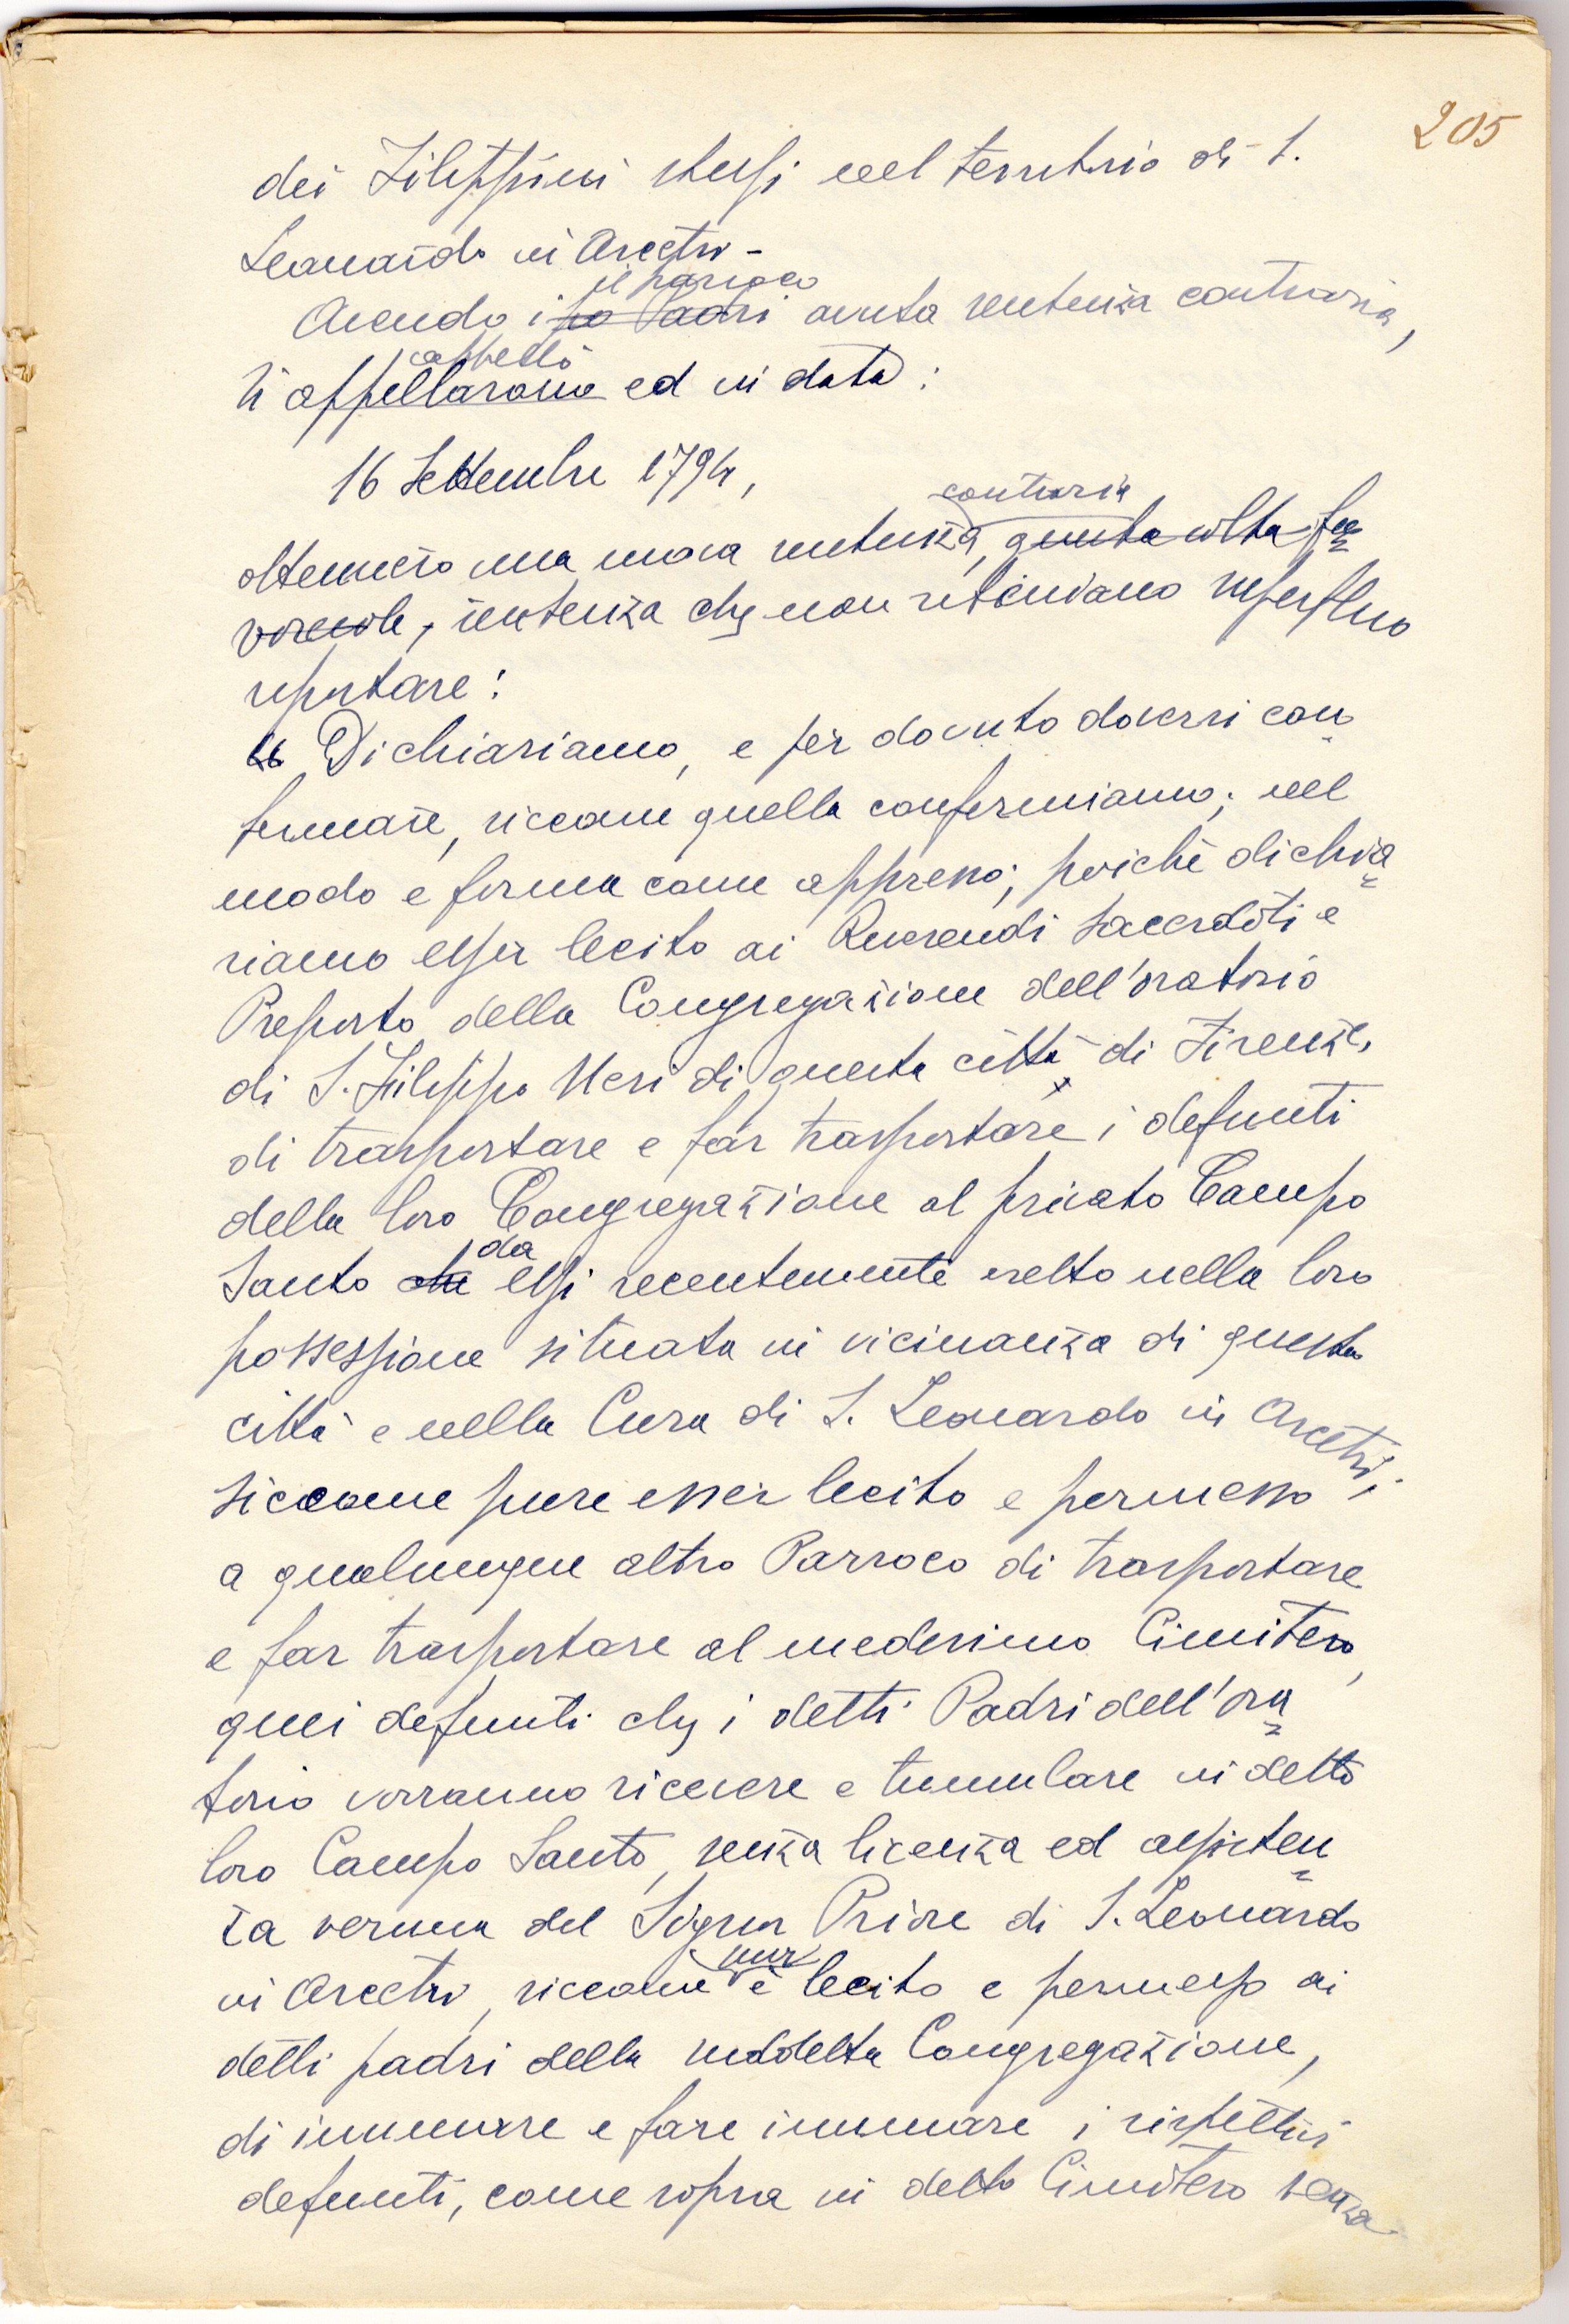 205
dei Filippini stessi nel territorio di S.
Leonardo in Arcetri -
il parroco
Avendo i po Padri avuta sentenza contraria,
cappellò
si appellarono ed in data:
16 Settembre 1794,
contraria
ottennero una nuova sentenza, questa volta fa=
vorevole, sentenza che non riteniamo superfluo
riportare:
" Dichiariamo, e per dovuto doversi con=
fermare, siccome quella confermiamo; nel
modo e forma come appresso; poichè dichia=
riamo esser lecito ai Reverendi Sacerdoti e
Preposto della Congregazione dell'oratorio
di S. Filippo Neri di questa città di Firenze,
di trasportare e far trasportare i defunti
della loro Congregazione al privato Campo
da
Santo che essi recentemente eretto nella loro
possessione situata in vicinanza di questa
città e nella Cura di S. Leonardo in Arcetri;
siccome pure esser lecito e permesso
a qualunque altro Parroco di trasportare
e far trasportare al medesimo Cimitero,
quei defunti che i detti Padri dell'ora=
torio vorranno ricevere e tumulare in detto
loro Campo Santo, senza licenza ed assisten=
za veruna del Signor Priore di S. Leonardo
pur
in Arcetri, siccome è lecito e permesso ai
detti padri della suddetta Congregazione,
di inumare e fare inumare i rispettivi
defunti, come sopra in detto Cimitero senza